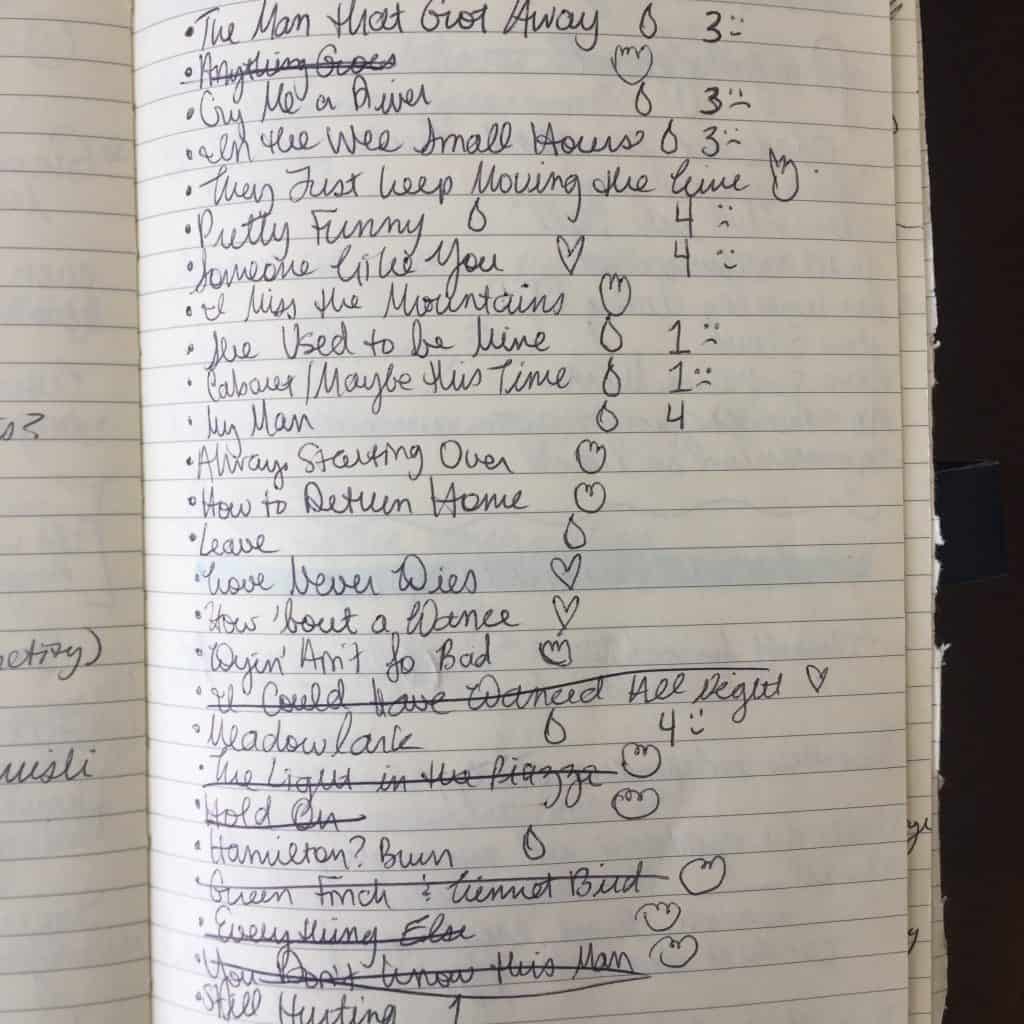 • The Man that Got Away 3
• Anything Goes
• Cry Me a River 3
• In the Wee Small Hours 3
• They Just Keep Moving the Line
• Pretty Funny 4
• Someone Like You 4
• I Miss the Mountains
• She Used to be Mine 1
• Cabaret/Maybe this Time 1
• My Man 4
• Always Starting Over
• How to Return Home
• Leave
• Love Never Dies
• How 'bout a Dance
• Dyin' Ain't So Bad
• I Could Have Danced All Night
• Meadowlark 4
• The Light in the Piazza
• Hold On
• Hamilton? Burn
• Green Finch & Linnet Bird
• Everything Else
• You Don't Know this Man
• Still Hurting 1